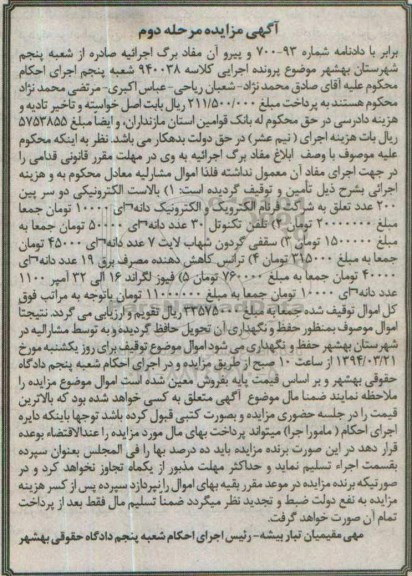 آگهی مزایده مرحله دوم
برابر با دادنامه شماره 93-700 و پیرو آن مفاد برگ اجرائیه صادره از شعبه پنجم
شهرستان بهشهر موضوع پرونده اجرایی کلاسه 940038 شعبه پنجم اجرای احکام
محکوم علیه آقای صادق محمد نژاد-شعبان ریاحی-عباس اکبری-مرتضی محمد نژاد
محکوم هستند به پرداخت مبلغ 211/500/000 ریال بابت اصل خواسته و تاخیر تادیه و
هزینه دادرسی در حق محکوم له بانک قوامین استان مازندران، و ایضا مبلغ 5753855
ریال بات هزینه اجرای (نیم عشر) در حق دولت بدهکار می باشد. نظر به اینکه محکوم
علیه موصوف با وصف ابلاغ مفاد برگ اجرائیه به وی در مهلت مقرر قانونی قدامی را
در جهت اجرای مفاد آن معمول نداشته فلذا اموال مشارلیه معادل محکوم به و هزینه
اجرائی بشرح ذیل تأمین و توقیف گردیده است: 1) بالاست الکترونیکی دو سر پین
200 عدد تعلق به شرکت فرنام الکترویک و الکترونیک دانه ای 10000 تومان جمعا
مبلغ 2000000 تومان 2) تلفن تکنوتل 30 عدد دانه ای 50000 تومان جمعا به
مبلغ 1500000 تومان 3) سقفی گردون شهاب لایت 7 عدد دانه ای 45000 تومان
جمعا به مبلغ 315000 تومان 4) ترانس کاهش دهنده مصرف برق 19 عدد دانه ای
40000 تومان جمعا به مبلغ 760000 تومان 5) فیوز لگراند 16 الی 32 آمپر 1100
عدد دانه ای 10000 تومان جمعا به مبلغ 11000000 تومان باتوجه به مراتب فوق
کل اموال توقیف شده جمعا به مبلغ ریال تقویم و ارزیابی می گردد. نتیجتا
اموال موصوف بمنظور حفظ و نگهداری آن تحویل حافظ گردیده و به توسط مشارالیه در
شهرستان بهشهر حفظ و نگهداری می شود اموال موضوع توقیف برای روز یکشنبه مورخ
1394/03/31 از ساعت 10 صبح از طریق مزایده و در اجرای احکام شعبه پنجم دادگاه
حقوقی بهشهر و بر اساس قیمت پایه بفروش معین شده است اموال موضوع مزایده را
ملاحظه نمایند ضمنا مال موضوع آگهی متعلق به کسی خواهد شده بود که بالاترین
قیمت را در جلسه حضوری مزایده و بصورت کتبی قبول کرده باشد توجها باینکه دایره
اجرای احکام (مامورا جرا) میتواند پرداخت بهای مال مورد مزایده را عندالاقتضاء بوعده
قرار دهد در این صورت برنده مزایده باید ده درصد بها را فی المجلس بعنوان سپرده
بقسمت اجراء تسلیم نماید و حداکثر مهلت مذبور از یکماه تجاوز نخواهد کرد و در
صورتیکه برنده مزایده در موعد مقرر بقیه بهای اموال را نپردازد سپرده پس از کسر هزینه
مزایده به نفع دولت ضبط و تجدید نظر میگردد ضمنا تسلیم مال فقط بعد از پرداخت
تمام آن صورت خواهد گرفت.
مهی مقیمیان تبار پیشه- رئیس اجرای احکام شعبه پنجم دادگاه حقوقی بهشهر